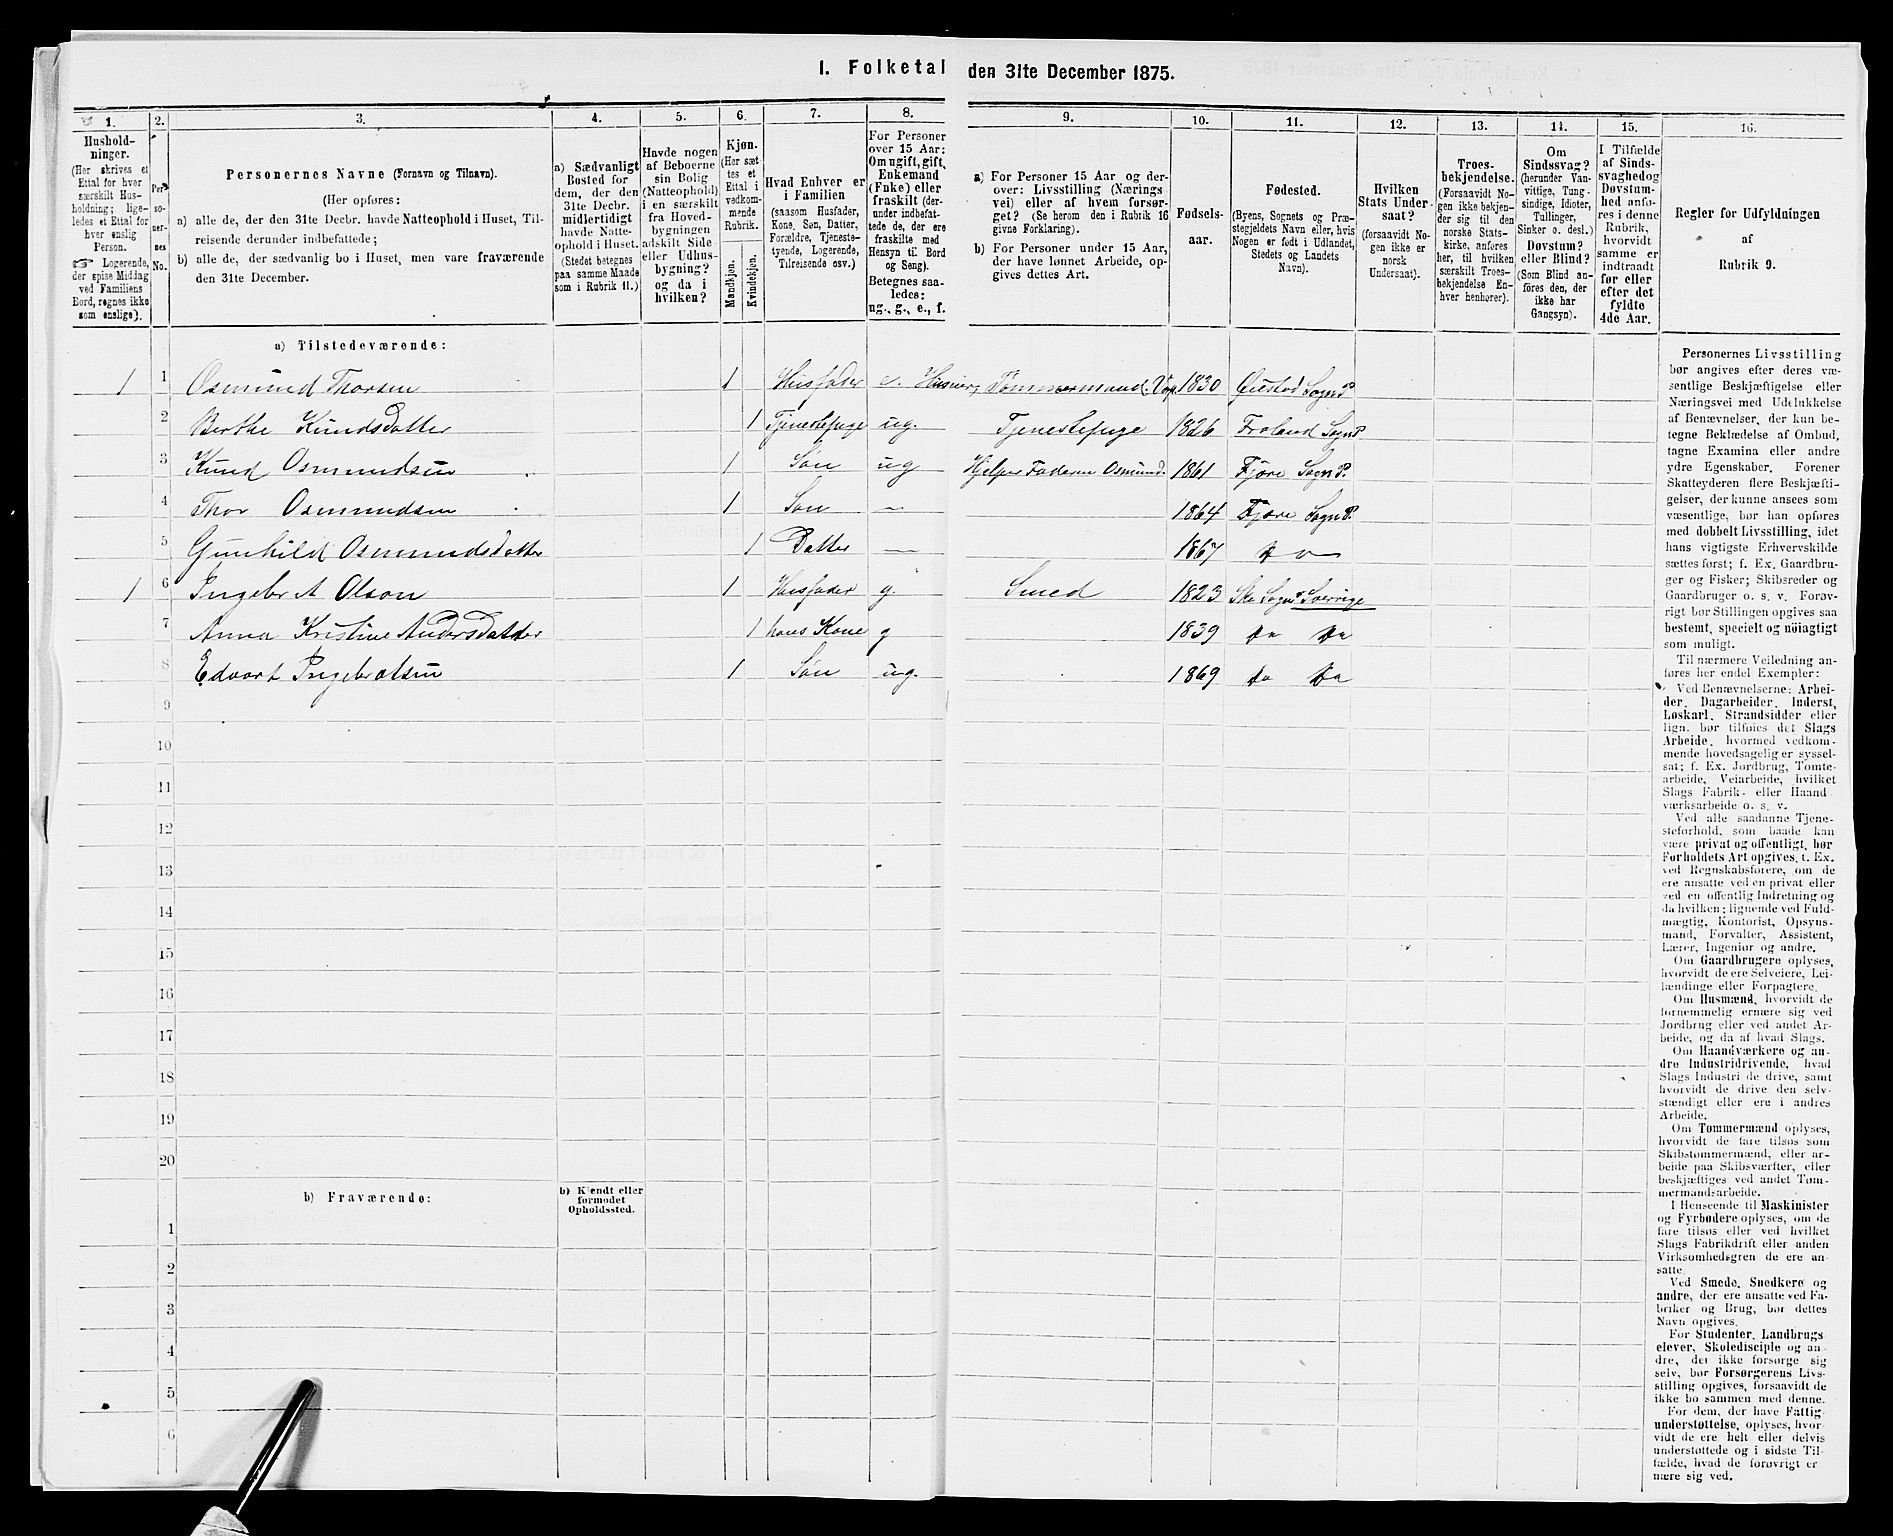 I. Folketal den 31te December 1875.
1. 2. 3. 4. 5. 6. 7. 8. 9. 10. 11. 12. 13. 14. 15. 16.
Hushold-
ninger.
(Her skrives et
Ettal for hver
særskilt Hus-
holdning; lige-
ledes et Ettal for
hver enslig
Person.
☞ Logerende,
der spise Middag
ved Familiens
Bord, regnes ikke
som enslige).
Per-
so-
ner-
nes
No.
Personernes Navne (Fornavn og Tilnavn).
(Her opføres:
a) alle de, der den 31te Decbr. havde Natteophold i Huset, Til-
reisende derunder indbefattede;
b) alle de, der sædvanlig bo i Huset, men vare fraværende
den 31te December.
a) Sædvanligt
Bosted for
dem, der den
31te Decbr.
midlertidigt
havde Natte-
ophold i Huset.
(Stedet betegnes
paa samme Maade
som i Rubrik 11.)
Havde nogen
af Beboerne
sin Bolig
(Natteophold)
i en særskilt
fra Hoved-
bygningen
adskilt Side
eller Udhus-
bygning?
og da i
hvilken?
Kjøn.
(Her sæt
tes et
Ettal i
vedkom-
mende
Rubrik.
Mandkjøn.
Kvindekjøn.
Hvad Enhver er
i Familien
(saasom Husfader,
Kone, Søn, Datter,
Forældre, Tjeneste-
tyende, Logerende,
Tilreisende osv.)
For Personer
over 15 Aar:
Om ugift, gift,
Enkemand
(Enke) eller
fraskilt (der-
under indbefat-
tede de, der ere
fraskilte med
Hensyn til Bord
og Seng).
Betegnes saa-
ledes:
ug., g., e., f.
a) For Personer 15 Aar og der-
over: Livsstilling (Nærings
vei) eller af hvem forsør-
get? (Se herom den i Rubrik 16
givne Forklaring).
b) For Personer under 15 Aar,
der have lønnet Arbeide, op-
gives dettes Art.
Fødsels-
aar.
Fødested.
(Byens, Sognets og Præ-
stegjeldets Navn eller, hvis
Nogen er født i Udlandet,
Stedets og Landets
Navn).
Hvilken
Stats Under-
saat?
(forsaavidt No-
gen ikke er
norsk
Undersaat).
Troes-
bekjendelse.
(Forsaavidt No-
gen ikke bekjen-
der sig til den
norske Stats-
kirke, anføres
her, til hvilken
særskilt Troes-
bekjendelse En-
hver henhører).
Om
Sindssvag?
(herunder Van-
vittige, Tung-
sindige, Idioter,
Tullinger,
Sinker o. desl.)
Døvstum?
eller Blind?
(Som Blind an-
føres den, der
ikke har
Gangsyn).
I Tilfælde
af Sinds-
svaghedog
Døvstum-
hed anfø-
res i denne
Rubrik,
hvorvidt
samme er
indtraadt
før eller
efter det
fyldte
4de Aar.
Regler for Udfyldningen
af
Rubrik 9.
a) Tilstedeværende:
1 1 Osmund Thorsen 1 Husfader e. Tømmermand 1830 Øiestad Sogn P
2 Berthe Knudsdatter 1 Tjenestepige ug. Tjenestepige 1826 Froland Sogn P
3 Knud Osmundsen 1 Søn ug Hjelper Faderen Osmund. 1861 Fjære Sogn P.
4 Thor Osmundsen 1 Søn — 1864 Fjære Sogn P.
5 Gunhild Osmundsdatter 1 Datter — 1867 do —
1 6 Ingebret Olson 1 Husfader g. Smed 1823 Ske Sogn Sverrige
7 Anna Kristine Andersdatter 1 hans Kone g 1839 Do Do
8 Edvart Ingebretsen 1 Søn ug. 1869 Do Do
9
10
11
12
13
14
15
16
17
18
19
20
b) Fraværende: b) Kjendt eller
formodet
Opholdssted.
1
2
3
4
5
6
Personernes Livsstilling
bør angives efter deres væ-
sentlige Beskjæftigelse eller
Næringsvei med Udelukkelse
af Benævnelser, der kun be-
tegne Beklædelse af Ombud,
tagne Examina eller andre
ydre Egenskaber. Forener
Skatteyderen flere Beskjæfti-
gelser, der kunne ansees som
væsentlige, bør han opføres
med dobbelt Livsstilling, idet
hans vigtigste Erhvervskilde
sættes først; f. Ex. Gaardbru-
ger og Fisker; Skibsreder og
Gaardbruger o. s. v. Forøv-
rigt bør Stillingen opgives saa
bestemt, specielt og nöiagtigt
som muligt.
Til nærmere Veiledning an-
føres her endel Exempler:
Ved Benævnelserne: Arbei-
der, Dagarbeider, Inderst,
Løskarl, Strandsidder eller
lign. bør tilføies det Slags
Arbeide, hvormed vedkom-
mende hovedsagelig er syssel-
sat; f. Ex. Jordbrug, Tomte-
arbeide, Veiarbeide, hvilket
Slags Fabrik- eller Haand
værksarbeide o. s. v.
Ved alle saadanne Tjene-
steforhold, som baade kan
være privat og offentligt, bør
Forholdets Art opgives, t. Ex.
ved Regnskabsførere, om de
ere ansatte ved en privat eller
ved en offentlig Indretning og
da hvilken; lignende ved Fuld-
mægtig, Kontorist, Opsyns-
mand, Forvalter, Assistent,
Lærer, Ingeniør og andre.
Om Gaardbrugere oplyses,
hvorvidt de ere Selveiere, Lei-
lændinge eller Forpagtere.
Om Husmænd, hvorvidt de
fornemmelig ernære sig ved
Jordbrug eller ved andet Ar-
beide, og da af hvad Slags.
Om Haandværkere og an-
dre Industridrivende, hvad
Slags Industri de drive, samt
hvorvidt de drive den selv-
stændigt eller ere i andres
Arbeide.
Om Tømmermænd oplyses,
hvorvidt de fare tilsøs som
Skibstømmermænd, eller ar-
beide paa Skibsværfter, eller
beskjæftiges ved andet Tøm-
mermandsarbeide.
I Henseende til Maskinister
og Fyrbødere oplyses, om de
fare tilsøs eller ved hvilket
Slags Fabrikdrift eller anden
Virksomhedsgren de ere an-
satte.
Ved Smede, Snedkere og
andre, der ere ansatte ved Fa-
briker og Brug, bør dettes
Navn opgives.
For Studenter, Landbrugs
elever, Skoledisciple og an-
dre, der ikke forsørge sig
selv, bør Forsørgerens Livs-
stilling opgives, forsaavidt de
ikke bo sammen med denne.
For dem, der have Fattig-
understøttelse, oplyses, hvor-
vidt de ere helt eller delvis
understøttede og i sidste Til-
fælde, hvad de forøvrigt er
nære sig ved.